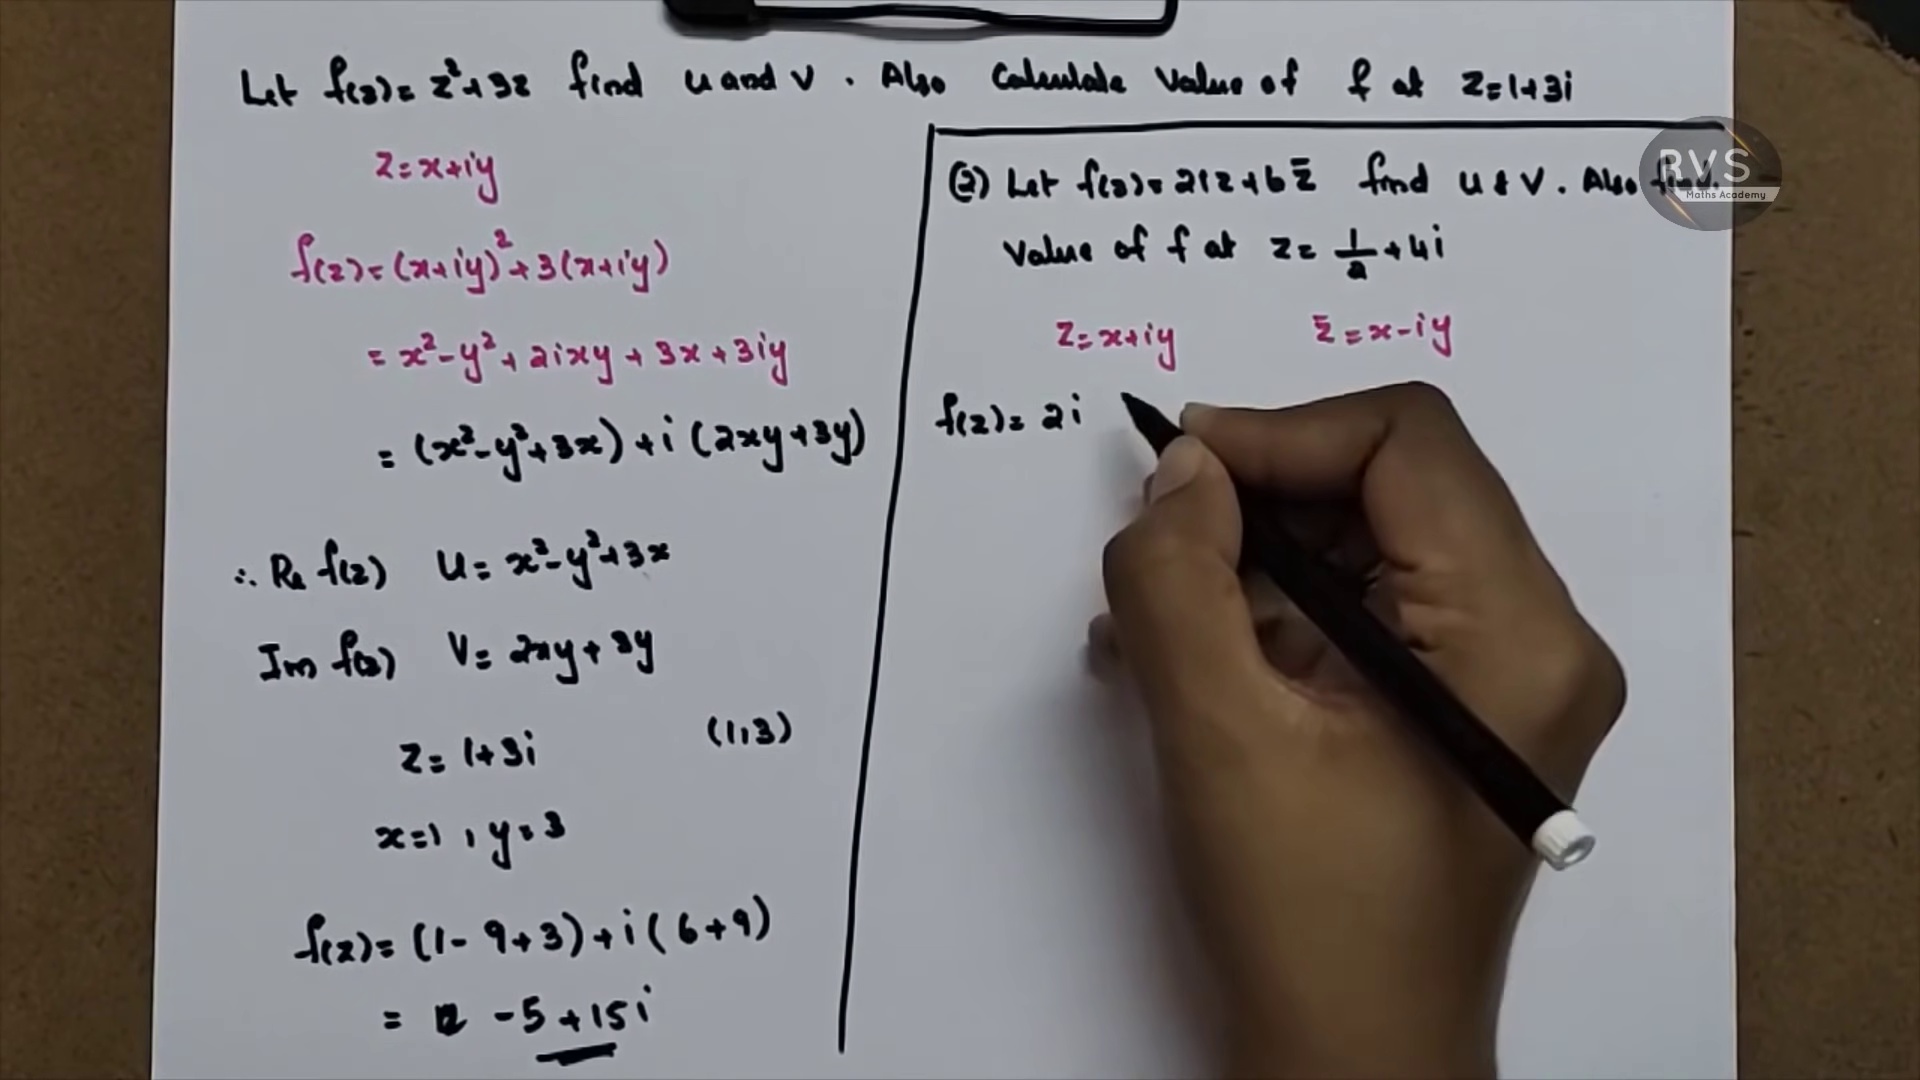 Let f(z) = z²+3z find u and v. Also Calculate Value of f at z=1+3i
z=x+iy
f(z)=(x+iy)²+3(x+iy)
= x²-y²+2ixy+3x+3iy
= (x²-y²+3x)+i(2xy+3y)
∴ Re f(z) u= x²-y²+3x
Im f(z) v= 2xy+3y
z= 1+3i (1,3)
x=1, y=3
f(z)= (1-9+3)+i(6+9)
= -5+15i
(2) Let f(z)= 2iz+6z̄ find u & v. Also find
Value of f at z= 1/2 +4i
z=x+iy z̄=x-iy
f(z)= 2i
RVS
Maths Academy